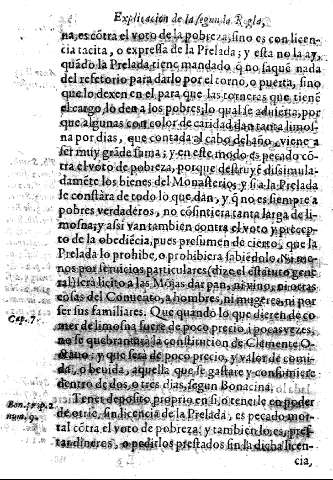 Explicacion de la segunda Regla,
na, es cõtra el voto de la pobreza, sino es con licen-
cia tacita, o expressa de la Prelada; y esta no la ay,
quãdo la Prelada tiene mandado q̃ no saquẽ nada
del refetorio para darlo por el torno, o puerta, sino
que lo dexen en el para que las torneras que tienẽ
el cargo, lo den a los pobres; lo qual se advierte, por
que algunas con color de caridad dan tanta limos-
na por dias, que contada al cabo del año, viene a
ser muy grãde suma; y en este modo es pecado cõ-
tra el voto de pobreza, porque destruyẽ dissimula-
damẽte los bienes del Monasterio; y si a la Prelada
le constàra de todo lo que dan, y q̃ no es siempre a
pobres verdaderos, no cosintiera tanta larga de li-
mosna; y assi van tambien contra el voto y precep-
to de la obediẽcia, pues presumen de cierto, que la
Prelada lo prohibe, o prohibiera sabiẽdolo. Ni me-
nos por servicios particulares (dize el estatuto gene
ral) serà licito a las Mõjas dar pan, ni vino, ni otras
cosas del Convento, a hombres, ni mugeres, ni por
ser sus familiares. Que quando lo que dieren de co
Cap. 7.
mer de limosna fuere de poco precio, i pocas vezes,
no se quebranta la constitucion de Clemente O-
ctavo; y que serà de poco precio, y valor de comi-
da, o bevida, aquella que se gastare y consumiere
dentro de dos, o tres dias, segun Bonacina.
Tener deposito proprio en si, o tenerle en poder
de otrie, sin licencia de la Prelada, es pecado mor-
tal cõtra el voto de pobreza; y tambien lo es, pres-
tar dineros, o pedirlos prestados sin la dicha licen-
cia,